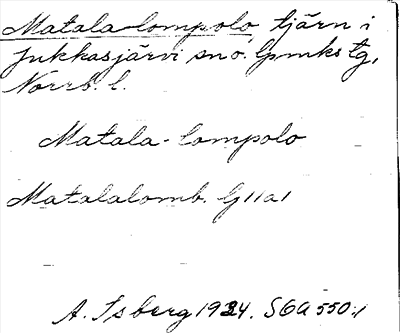 Matala-lompolo, tjärn i
Jukkasjärvi sn o. lpmks tg,
Norrb. l.
Matala-lompolo
Matalalomb. G11a1
A. Isberg 1934. SGA 550:1